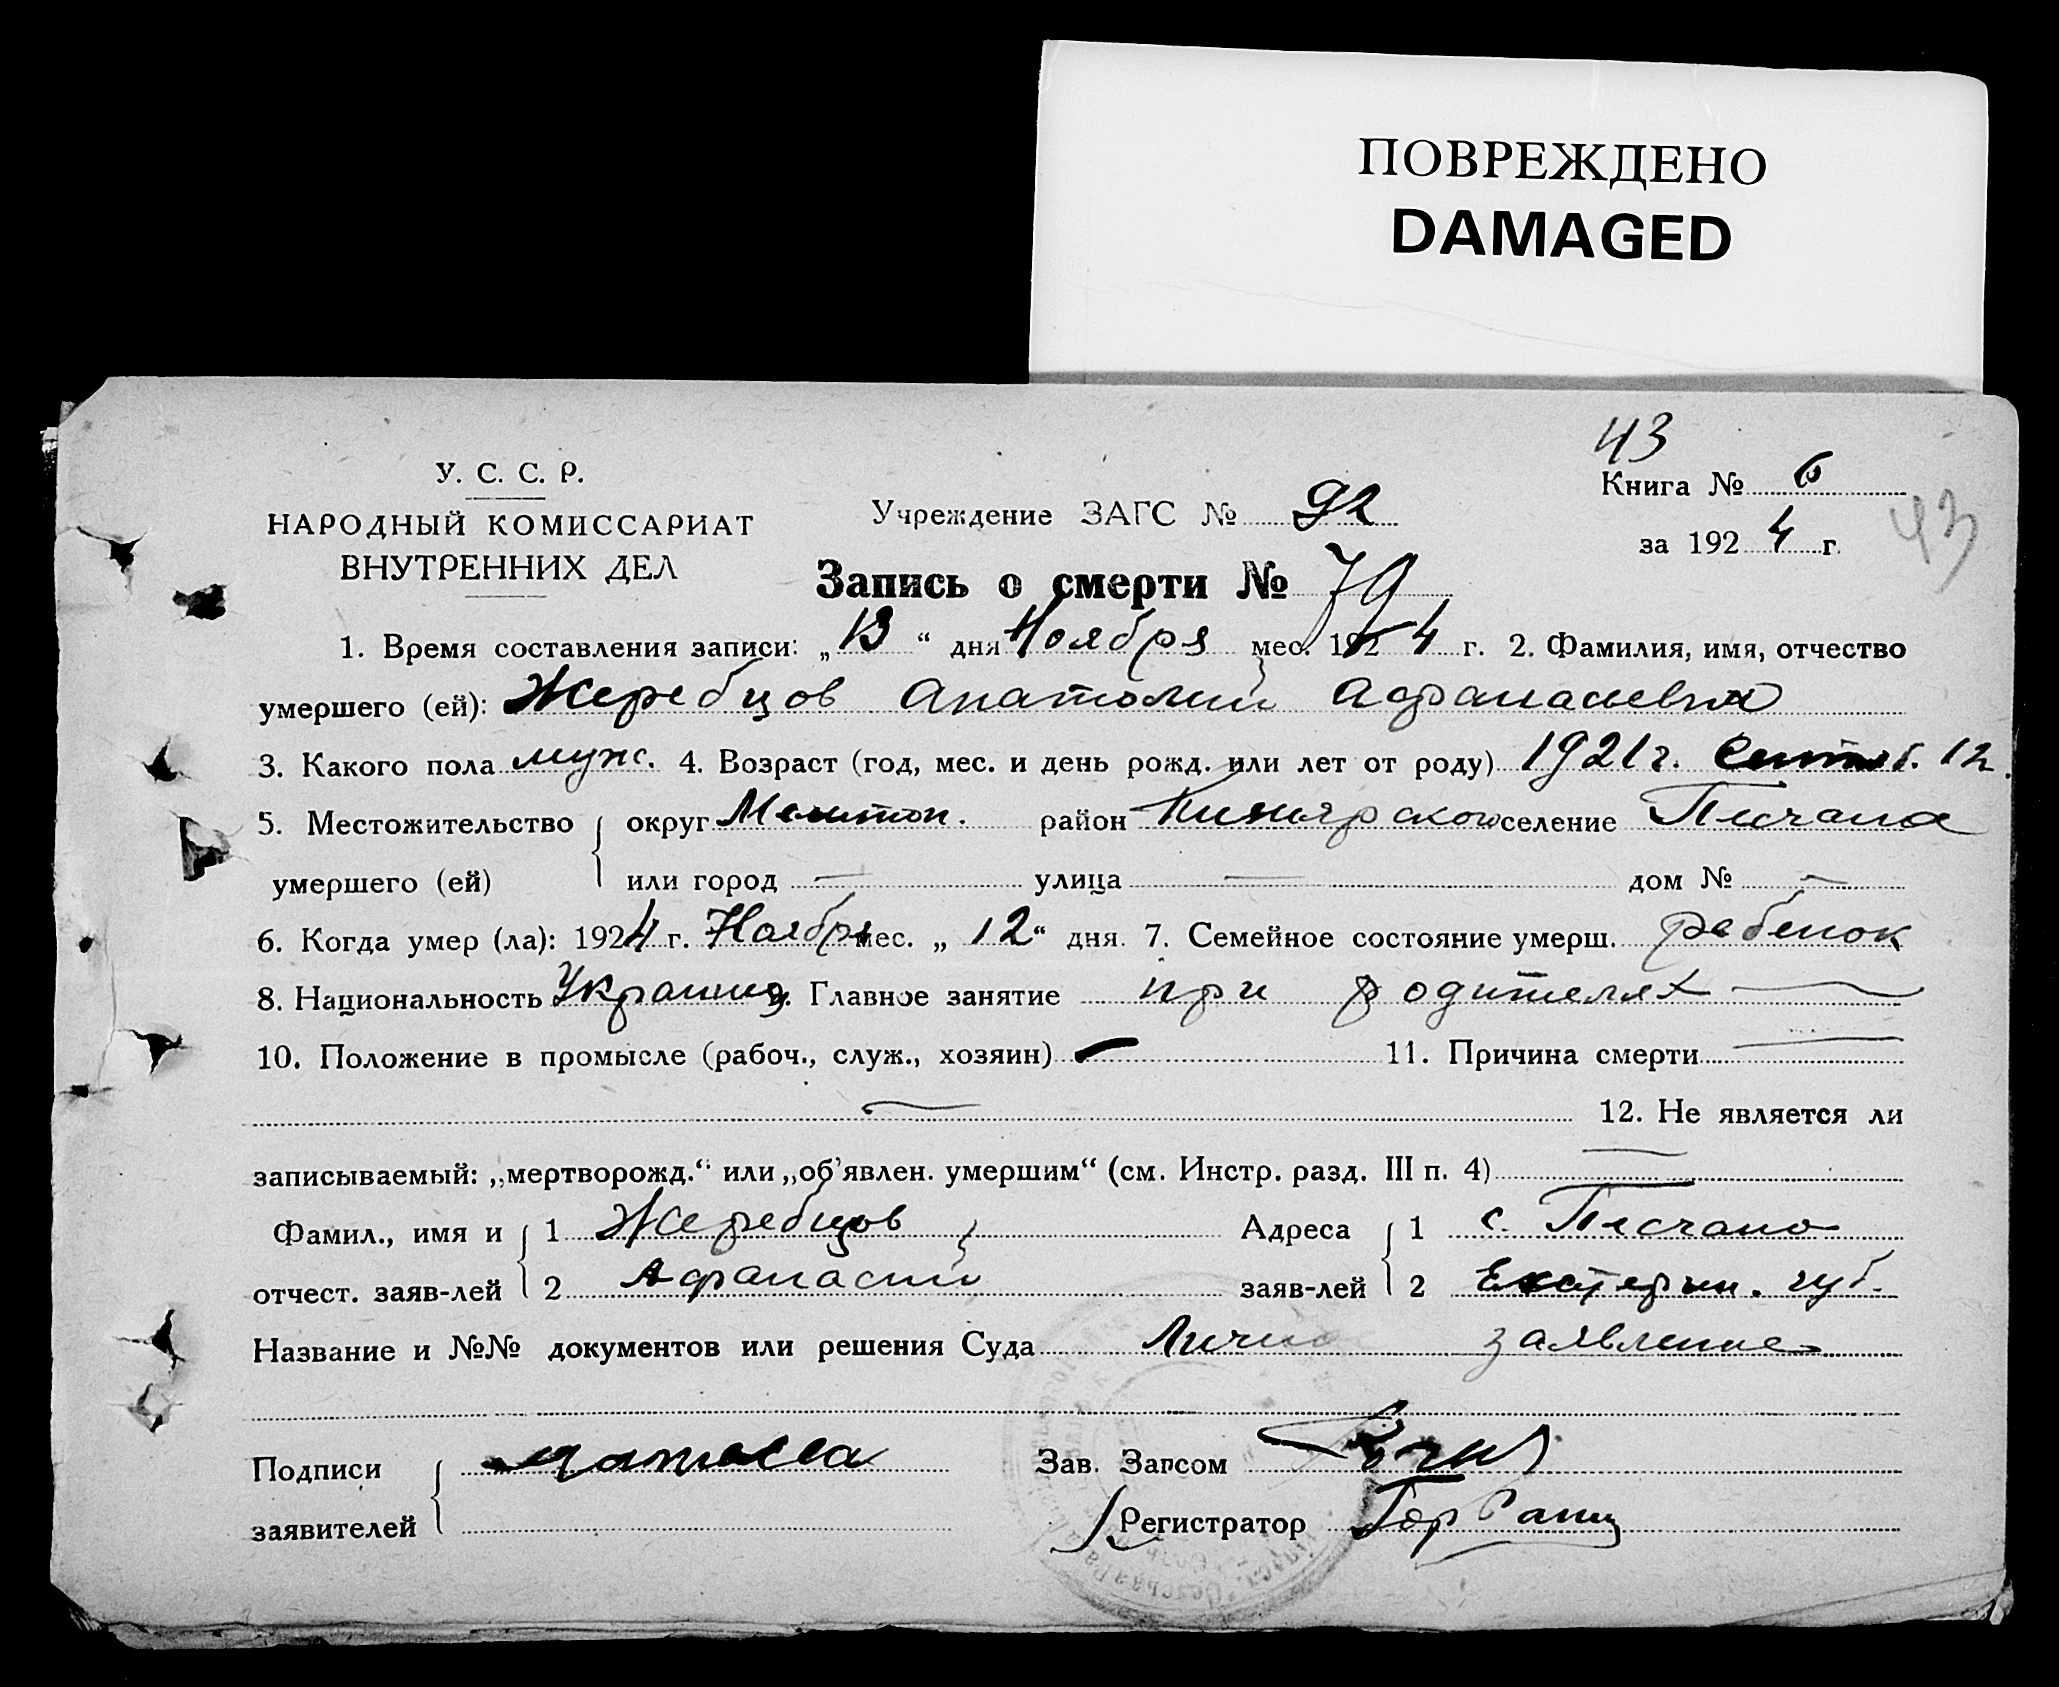 ПОВРЕЖДЕНО
DAMAGED
43
У. С. С. Р.
НАРОДНЫЙ КОМИССАРИАТ
ВНУТРЕННИХ ДЕЛ
Учреждение ЗАГС № 92
Книга № 6
за 1924 г.
43
Запись о смерти № 79
1. Время составления записи: „13“ дня Ноября мес. 1924 г. 2. Фамилия, имя, отчество
умершего (ей): Жеребцов Анатолий Афанасьевич
3. Какого пола муж. 4. Возраст (год, мес. и день рожд. или лет от роду) 1921 г. Сентяб. 12.
5. Местожительство умершего (ей) округ Мелитоп. район селение
или город — улица — дом № —
6. Когда умер (ла): 1924 г. Ноября мес. „12“ дня. 7. Семейное состояние умерш. ребенок
8. Национальность Украинец 9. Главное занятие при родителях —
10. Положение в промысле (рабоч., служ., хозяин) — 11. Причина смерти —
— 12. Не является ли
записываемый: „мертворожд.“ или „об’явлен. умершим“ (см. Инстр. разд. III п. 4) —
Фамил., имя и отчест. заяв-лей 1 Жеребцов Адреса заяв-лей 1 с. Песчано
2 Афанасий 2 Екатерин. губ.
Название и №№ документов или решения Суда Личное заявление
Подписи заявителей
Зав. Загсом
Регистратор